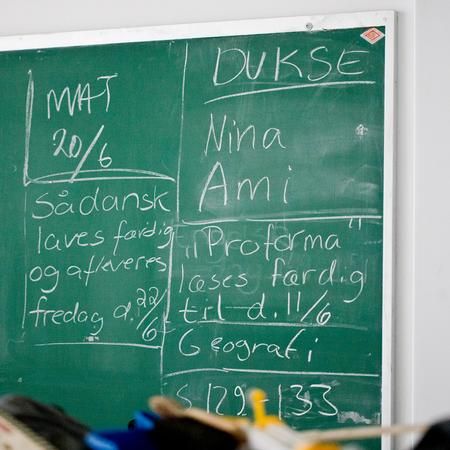 MAT
20/6
Sådansk
laves færdig
og afleveres
fredag d. 22/6
DUKSE
Nina
Ami
"Proforma"
læses færdig
til d. 11/6
Geografi
S 129-133